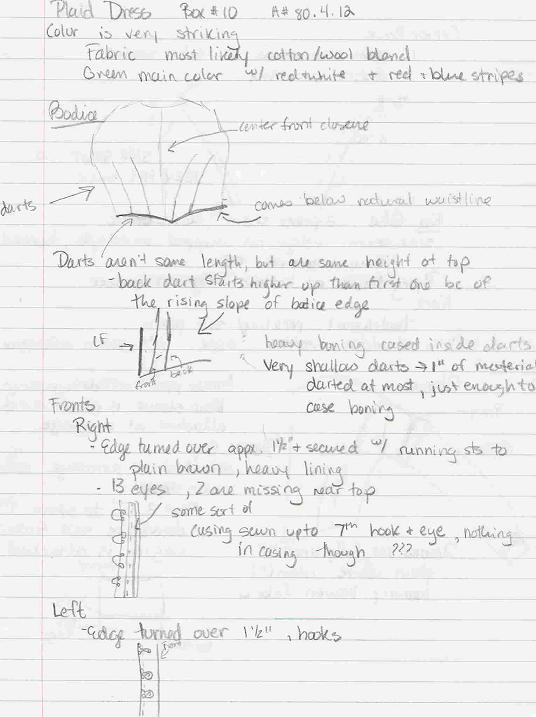 Plaid Dress Box #10 A# 80.4.12
Color is very striking
Fabric most likely cotton/wool blend
Green main color w/ red+white + red+blue stripes
Bodice
center front closure
darts
comes below natural waistline
Darts aren't same length, but are same height at top
- back dart starts higher up than first one bc of
the rising slope of bodice edge
LF
front
back
heavy boning cased inside darts
Very shallow darts → 1" of material
darted at most, just enough to
case boning
Fronts
Right
- Edge turned over appx. 1½" + secured w/ running sts to
plain brown, heavy lining
- 13 eyes, 2 are missing near top
some sort of
casing sewn upto 7th hook + eye, nothing
in casing though ???
Left
- Edge turned over 1½", hooks